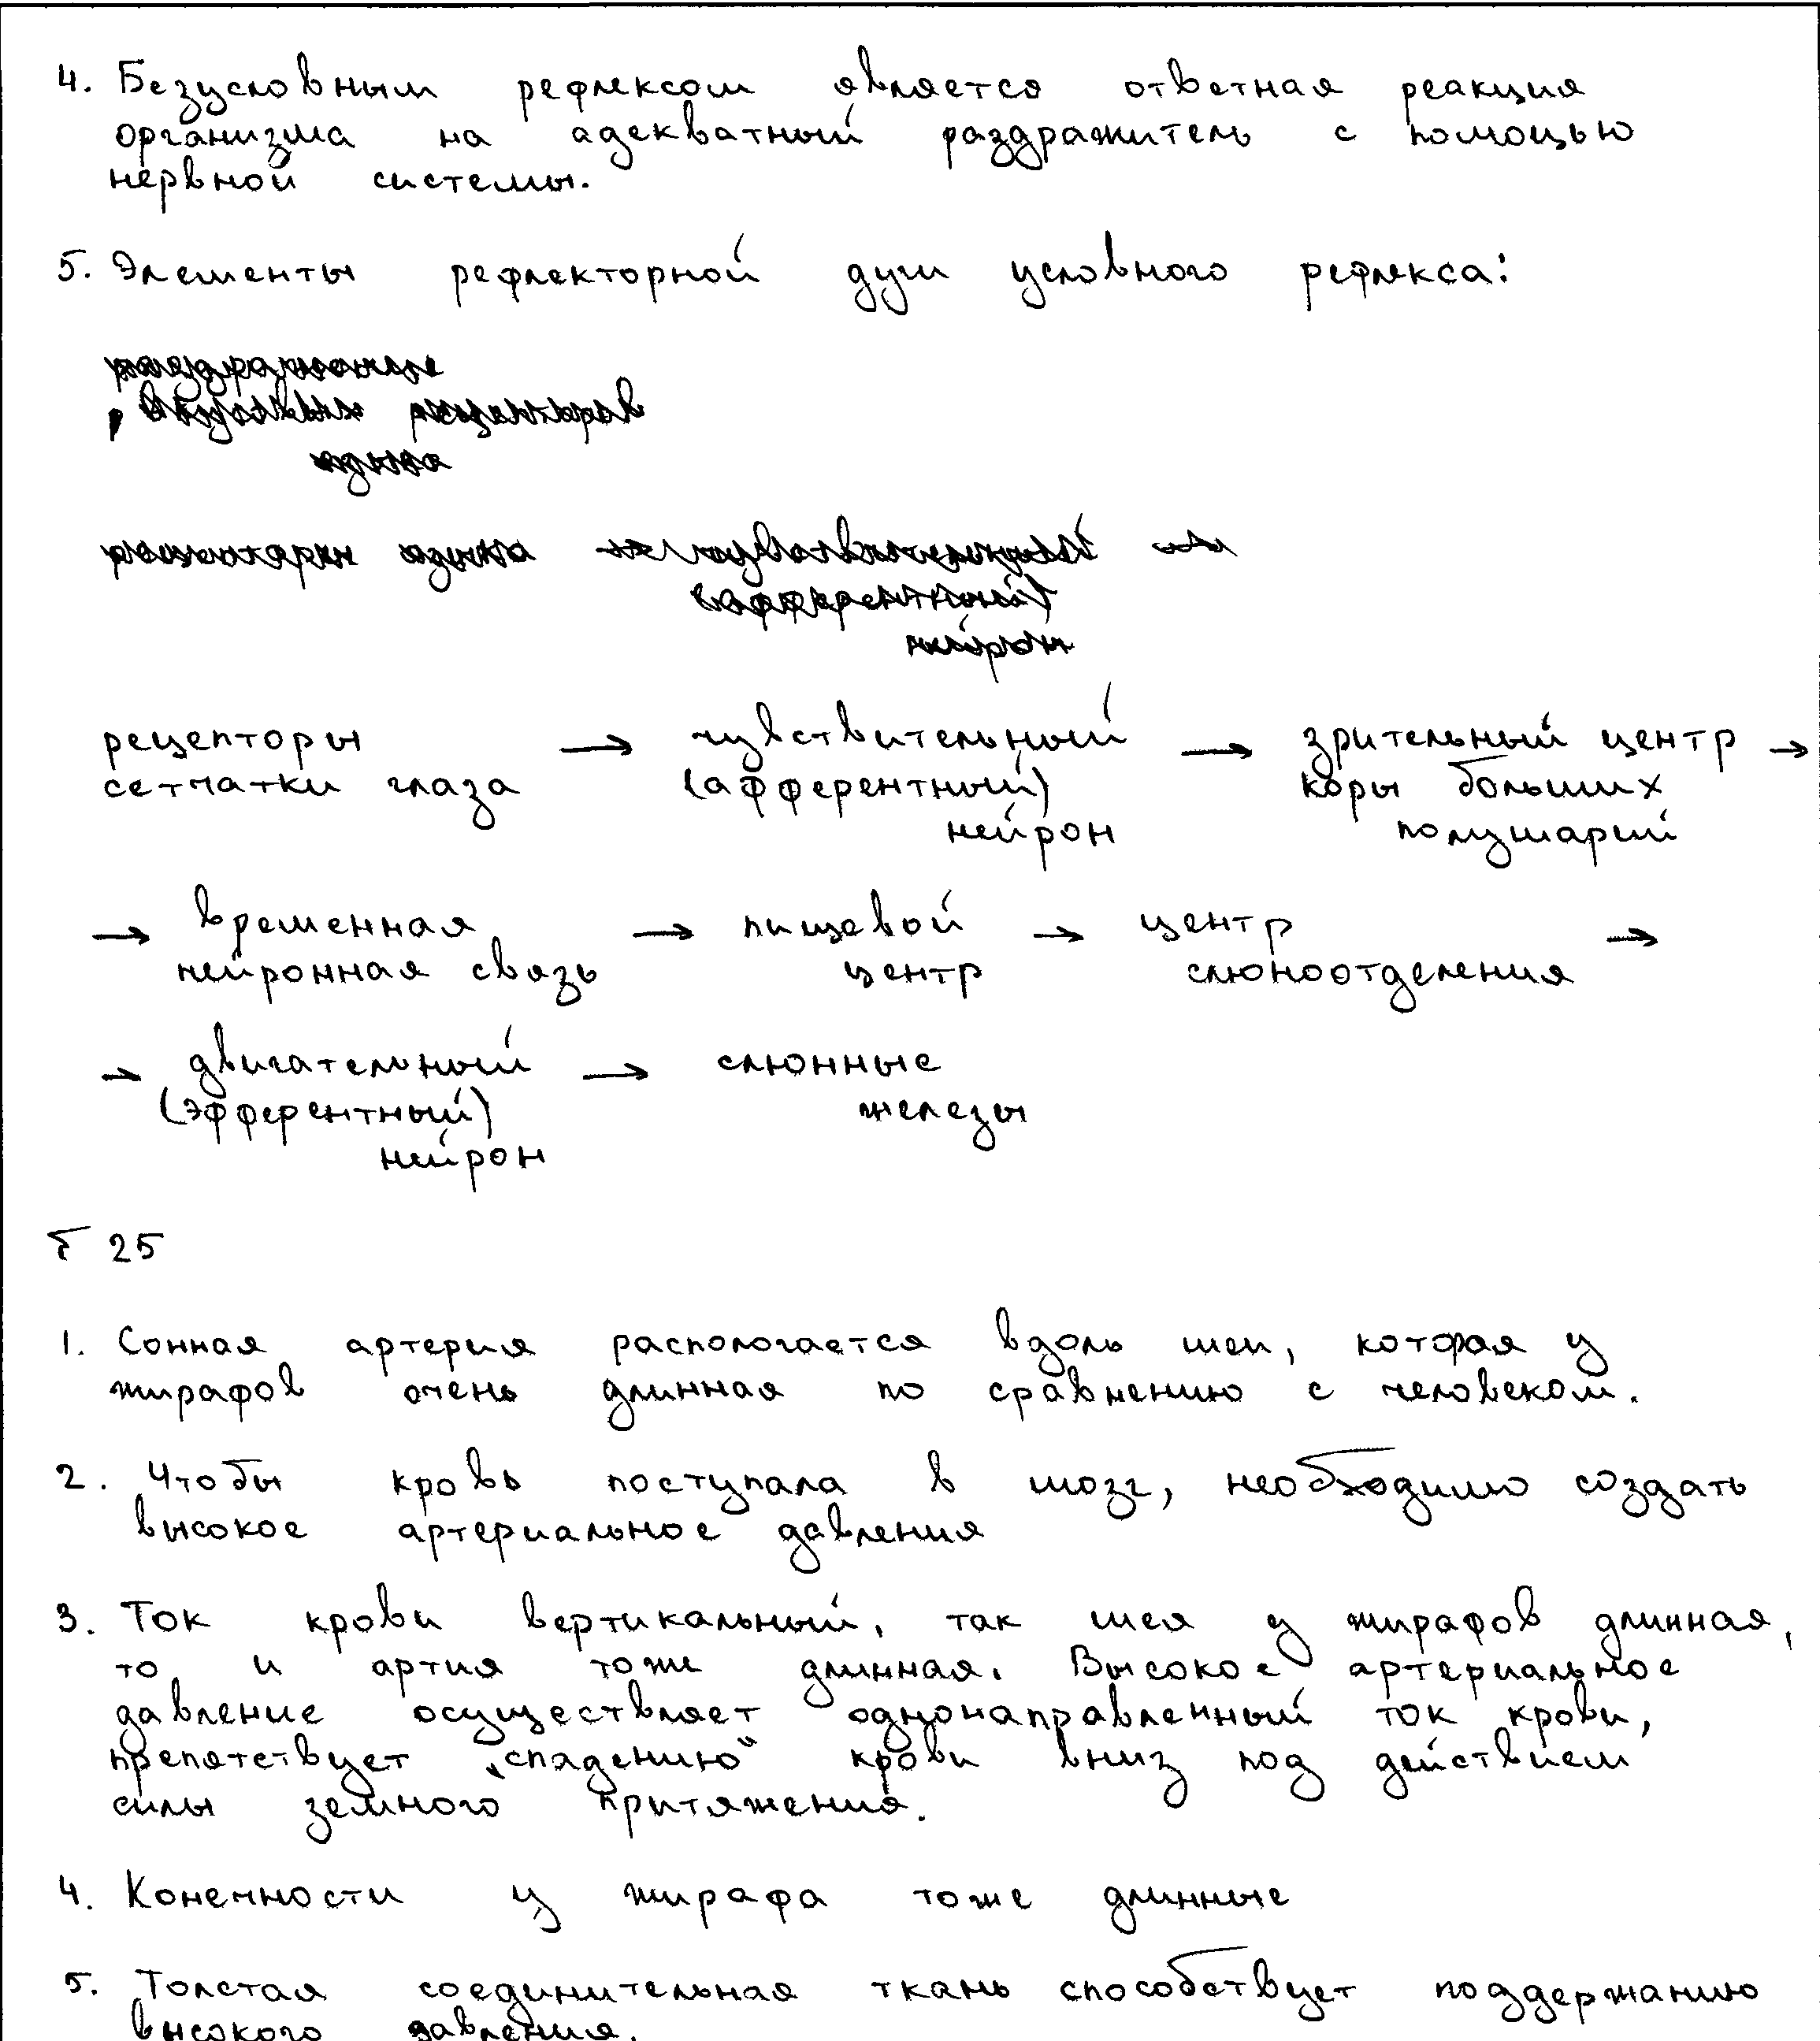 4. Безусловным рефлексом является ответная реакция
организма на адекватный раздражитель с помощью
нервной системы.
5. Элементы рефлекторной дуги условного рефлекса:
рецепторы → чувствительный → зрительный центр →
сетчатки глаза (афферентный) коры больших
нейрон полушарий
→ временная → пищевой → центр →
нейронная связь центр слюноотделения
→ двигательный → слюнные
(эфферентный) железы
нейрон
25
1. Сонная артерия распологается вдоль шеи, которая у
жирафов очень длинная по сравнению с человеком.
2. Чтобы кровь поступала в мозг, необходимо создать
высокое артериальное давления
3. Ток крови вертикальный, так шея у жирафов длинная,
то и артия тоже длинная. Высокое артериальное
давление осуществляет однонаправленный ток крови,
препятствует „спадению" крови вниз под действием
силы земного притяжения.
4. Конечности у жирафа тоже длинные
5. Толстая соединительная ткань способствует поддержанию
высокого давления.